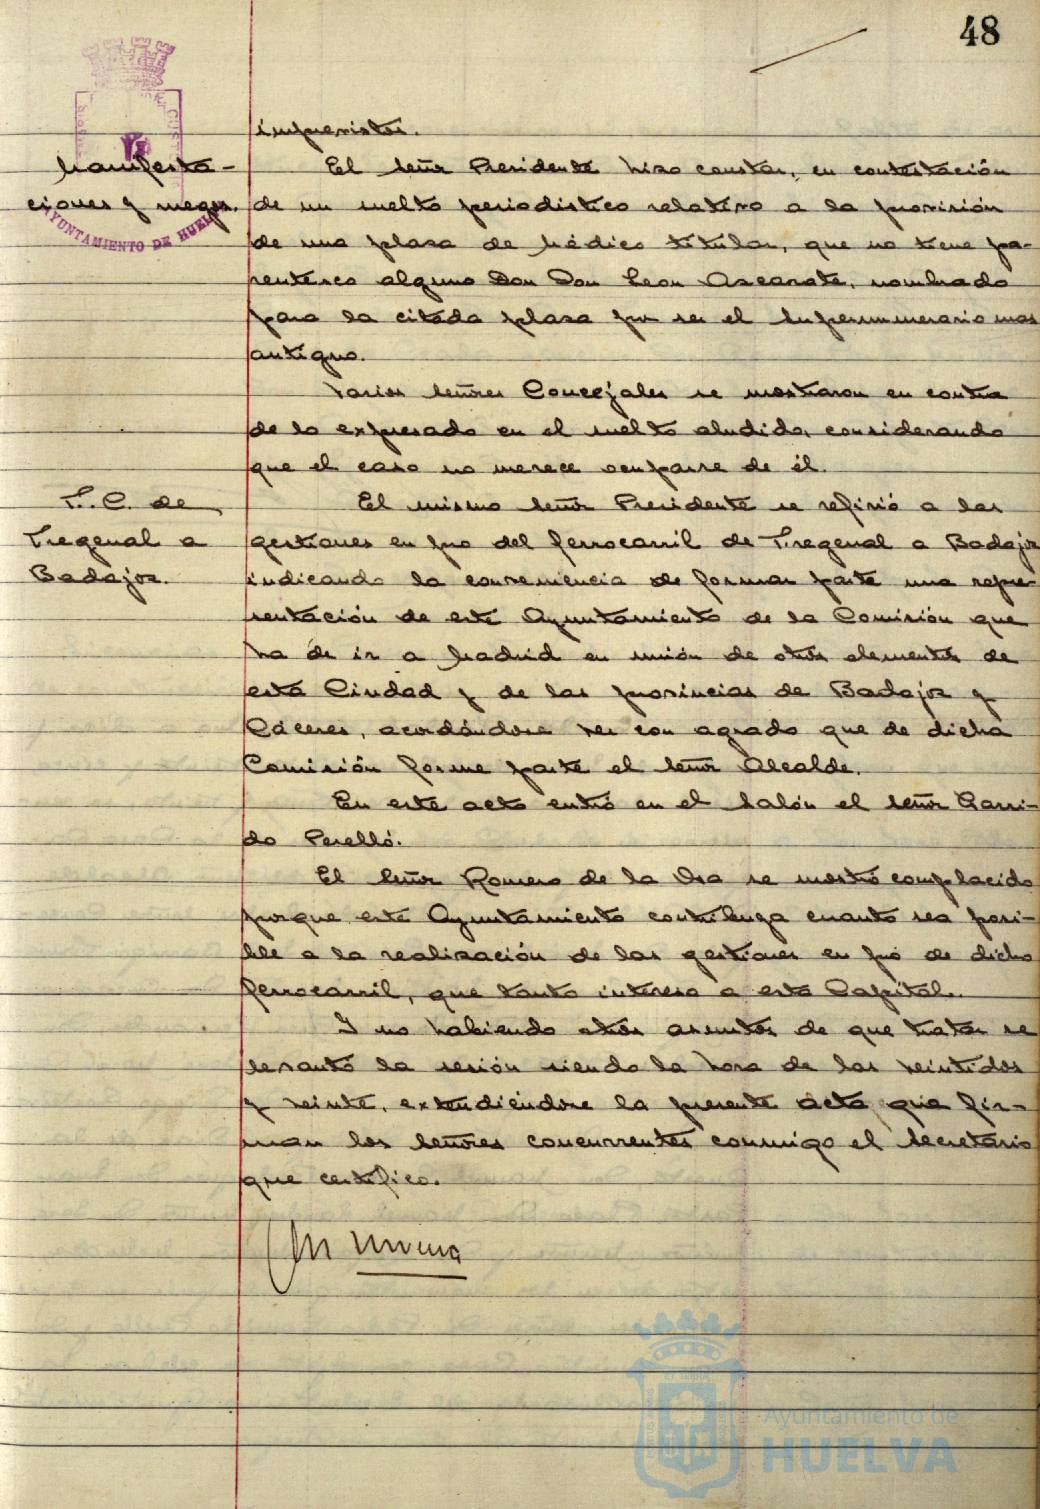 48
imprevistos.
Manifesta-
ciones y ruegos.
AYUNTAMIENTO DE HUELVA
El señor Presidente hizo constar, en contestación
de un suelto periodístico relativo a la provisión
de una plaza de Médico titular, que no tiene pa-
rentesco alguno Don Don Leon Azcarate, nombrado
para la citada plaza por ser el supernumerario mas
antiguo.
Varios señores Concejales se mostraron en contra
de lo expresado en el suelto aludido, considerando
que el caso no merece ocuparse de él.
F. C. de
Fregenal a
Badajoz.
El mismo señor Presidente se refirió a las
gestiones en pro del ferrocarril de Fregenal a Badajoz
indicando la conveniencia de formar parte una repre-
sentación de este Ayuntamiento de la Comisión que
ha de ir a Madrid en unión de otros elementos de
esta Ciudad y de las provincias de Badajoz y
Cáceres, acordándose ver con agrado que de dicha
Comisión forme parte el señor Alcalde.
En este acto entró en el Salón el señor Garri-
do Perelló.
El señor Romero de la Osa se mostró complacido
porque este Ayuntamiento contribuya cuanto sea posi-
ble a la realización de las gestiones en pró de dicho
ferrocarril, que tanto interesa a esta Capital.
Y no habiendo otros asuntos de que tratar se
levantó la sesión siendo la hora de las veintidos
y veinte, extendiéndose la presente acta que fir-
man los señores concurrentes conmigo el Secretario
que certifico.
M Moreno
Ayuntamiento de
HUELVA